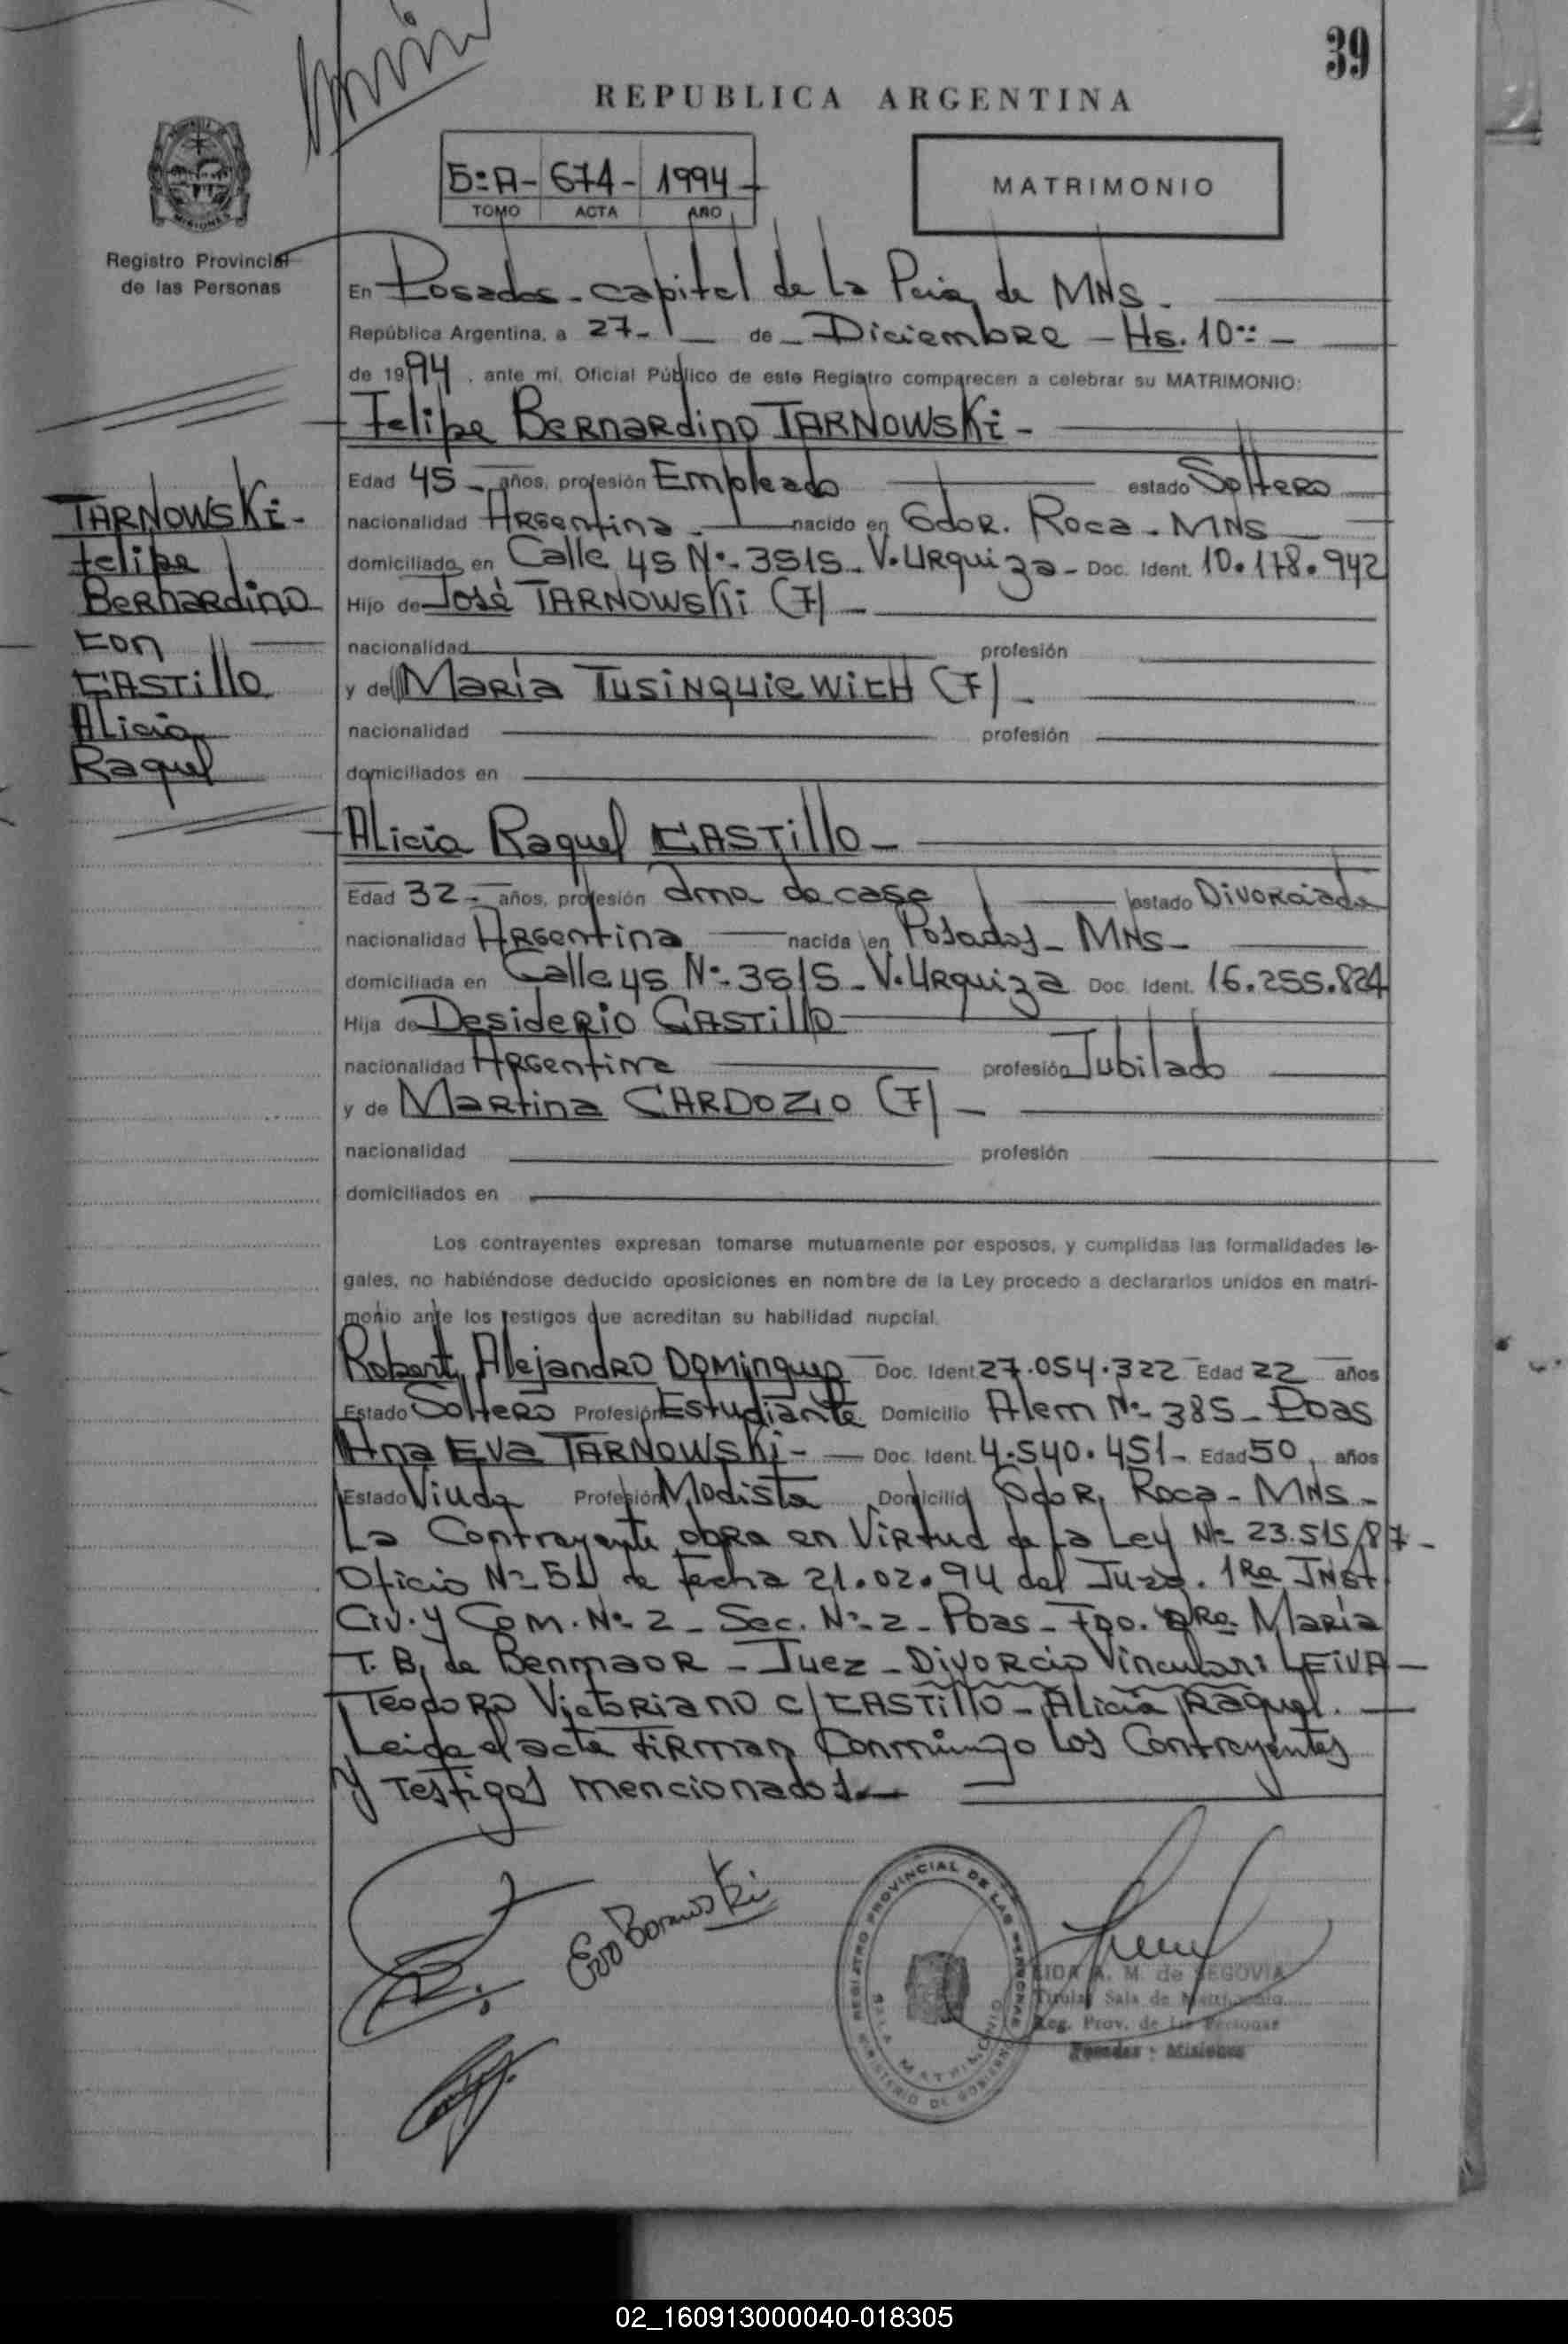 39
REPUBLICA ARGENTINA
5:A- 674- 1994-
TOMO ACTA AÑO
MATRIMONIO
Registro Provincial
de las Personas
En Posadas - capital de la Pcia de MNS.-
República Argentina, a 27- de - Diciembre - Hs. 10:: -
de 1994, ante mí, Oficial Público de este Registro comparecen a celebrar su MATRIMONIO:
Felipe Bernardino TARNOWSKi -
Edad 45 - años, profesión Empleado estado Soltero
nacionalidad Argentina - nacido en Gdor. Roca - MNS
domiciliado en Calle 45 Nº- 3515 - V. Urquiza - Doc. Ident. 10.178.942
Hijo de José TARNOWSKi (F) -
nacionalidad profesión
y de María TUSiNQUiEWiCH (F) -
nacionalidad profesión
domiciliados en
TARNOWSKi -
Felipe
Bernardino
con
CASTillo
Alicia
Raquel
Alicia Raquel CASTillo -
Edad 32 - años, profesión Ama de casa estado Divorciada
nacionalidad Argentina nacida en Posadas - MNS -
domiciliada en Calle 45 Nº- 3515 - V. Urquiza Doc. Ident. 16.255.824
Hija de Desiderio CASTillo
nacionalidad Argentina profesión Jubilado
y de Martina CARDOZO (F) -
nacionalidad profesión
domiciliados en
Los contrayentes expresan tomarse mutuamente por esposos, y cumplidas las formalidades le-
gales, no habiéndose deducido oposiciones en nombre de la Ley procedo a declararlos unidos en matri-
monio ante los testigos que acreditan su habilidad nupcial.
Alejandro Doc. Ident. 27.054.322 Edad 22 años
Estado Soltero Profesión Estudiante Domicilio Alem Nº- 385 - Poas
Ana Eva TARNOWSKi - Doc. Ident. 4.540.451 - Edad 50, años
Estado Viuda Profesión Modista Domicilio Gdor. Roca - MNS -
La Contrayente obra en Virtud de la Ley Nº 23.515/87 -
Oficio Nº 51 de fecha 21.02.94 del Juzg. 1Ra INST.
Civ. y Com. Nº- 2 - Sec. Nº- 2 - Poas - Fdo. DRa. María
T. B. de Benmaor - Juez - Divorcio Vincular: LEiVA -
Teodoro Victoriano c/ CASTillo - Alicia Raquel. -
Leida el acta firman Conmigo los Contrayentes
y Testigos mencionados. -
REGISTRO PROVINCIAL DE LAS PERSONAS
SALA MATRIMONIO
MINISTERIO DE GOBIERNO
A. M. de SEGOVIA
Titular Sala de Matrimonio
Reg. Prov. de las Personas
Posadas - Misiones
02_160913000040-018305